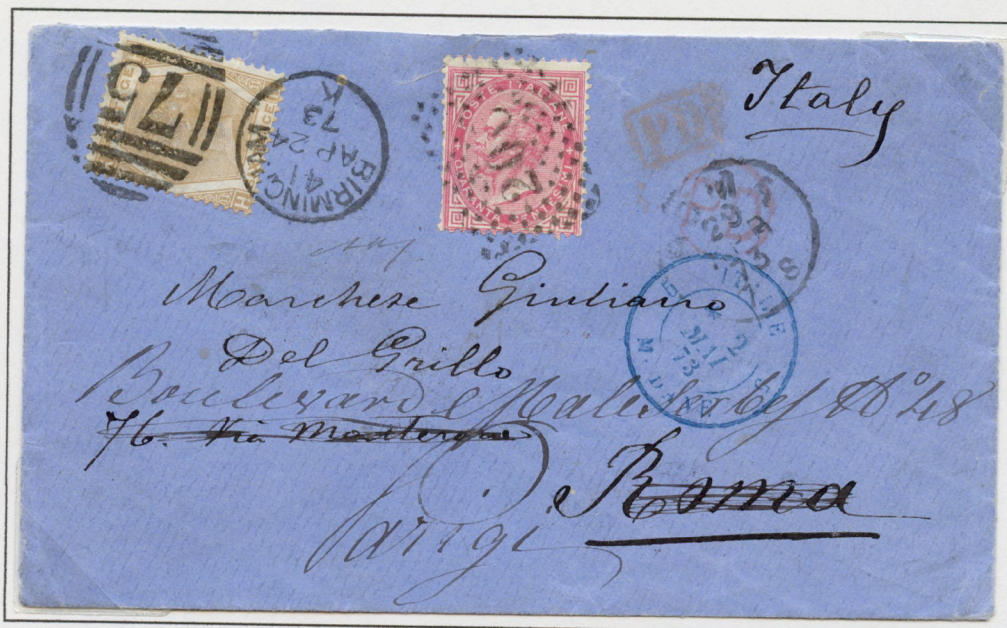 Italy
75
BIRMINGHAM
41
AP 24
73
K
POSTE ITALIANE
203
P.D.
Marchese Giuliano
Del Grillo
Boulevard Malesherbes N° 48
76. Via Monterone
Roma
Parigi
2
MAI
73